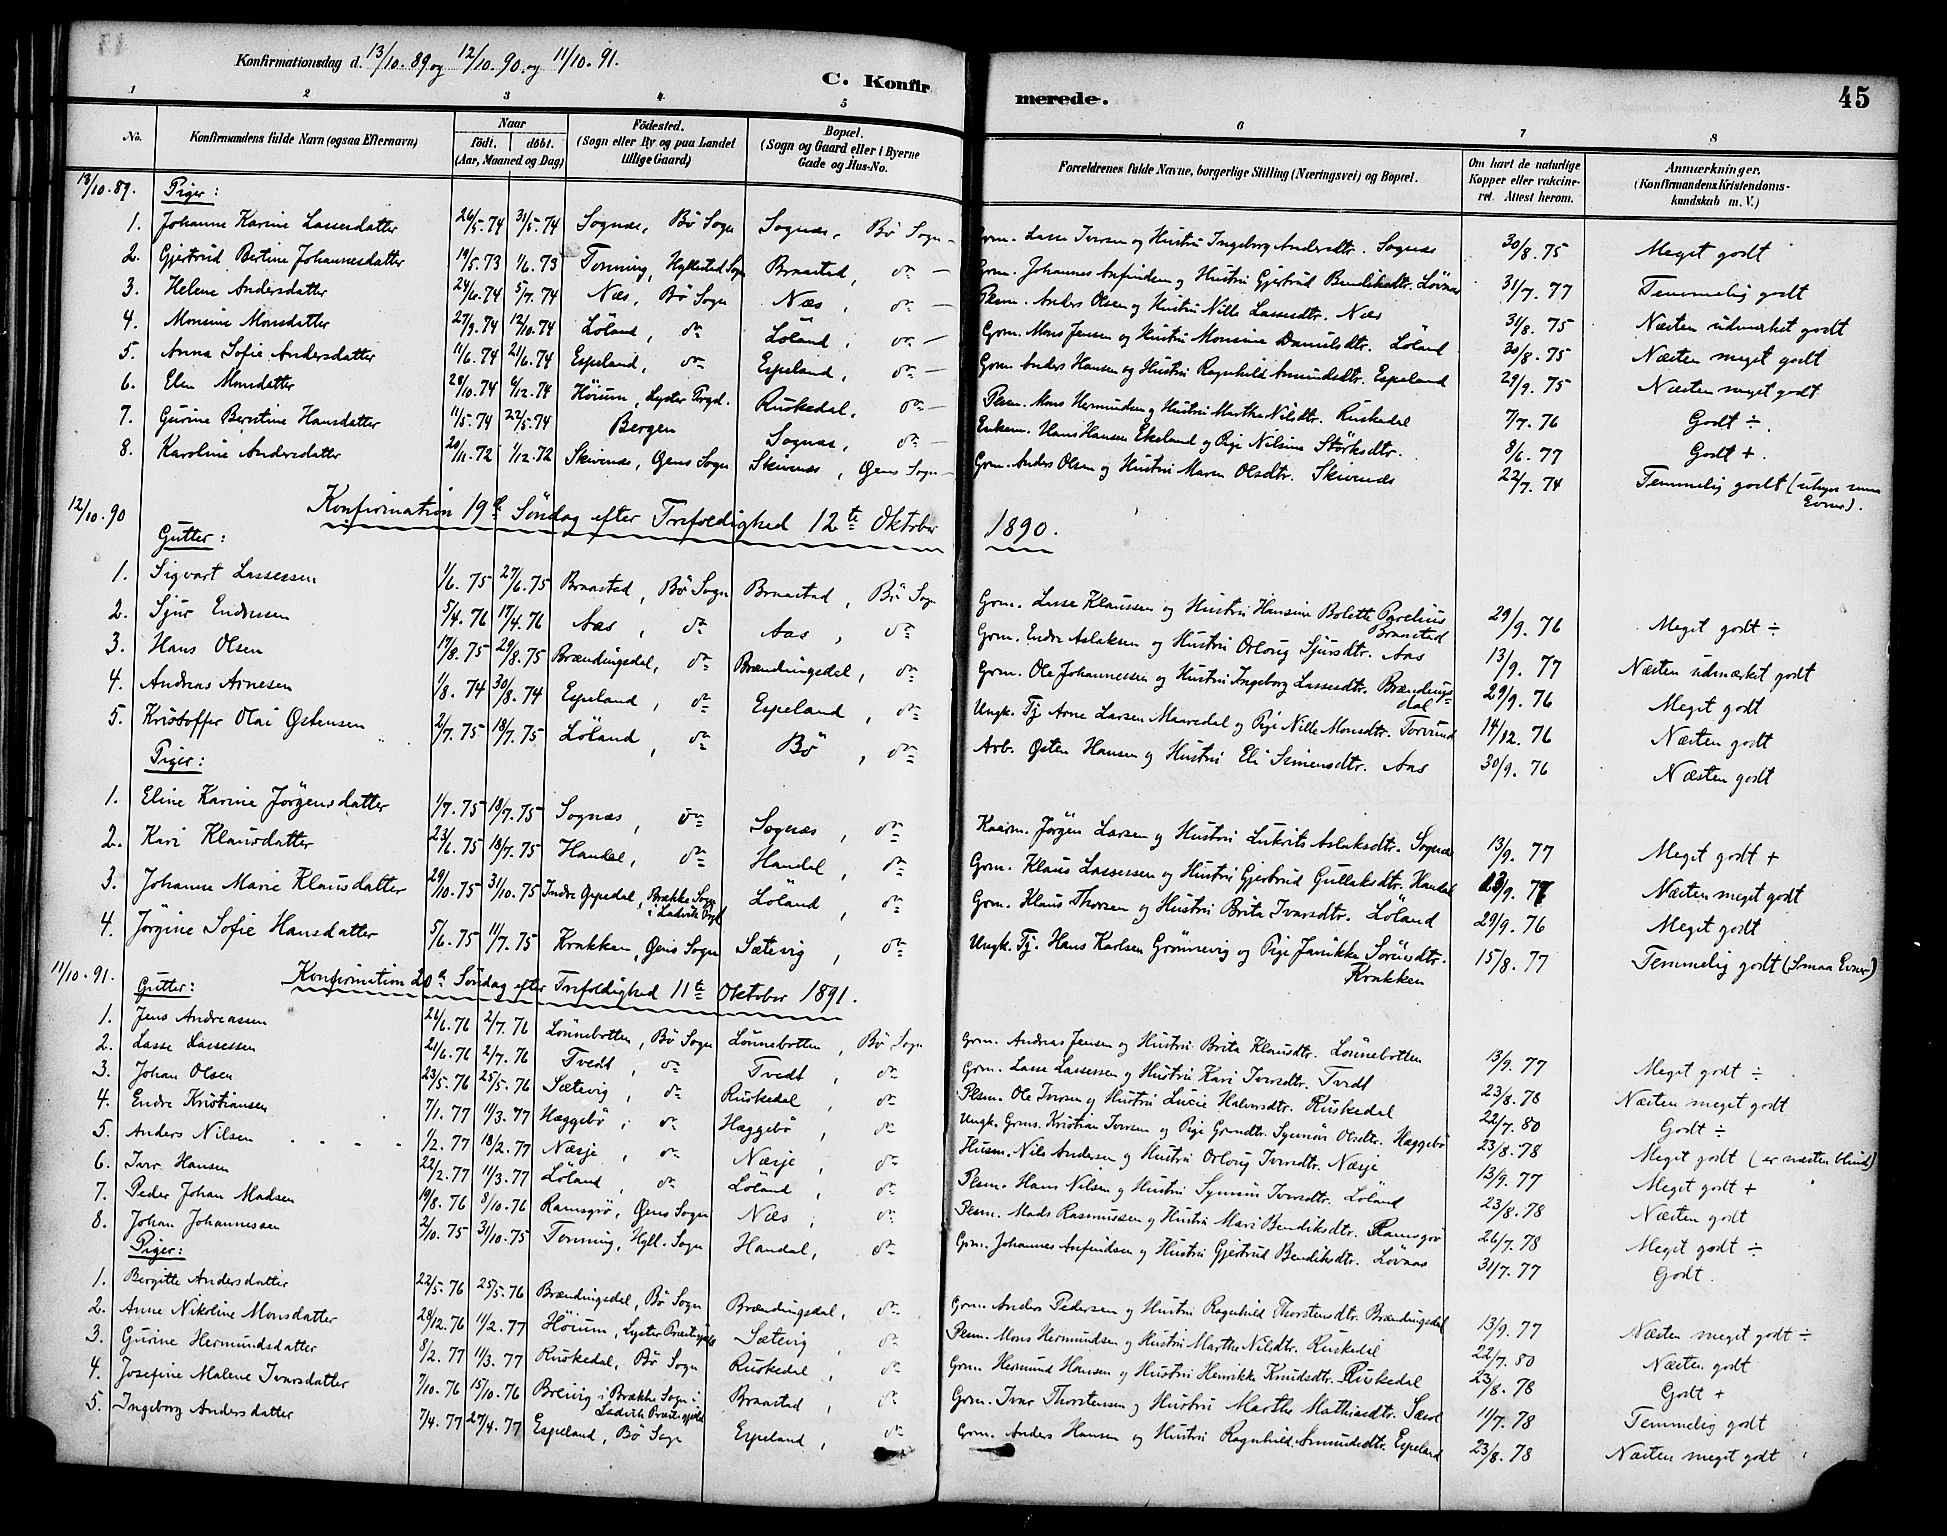 Konfirmationsdag d. 13/10.89 og 12/10.90. og 11/10.91.
C. Konfirmerede.
45
1 2 3 4 5 6 7 8
No. | Konfirmandens fulde Navn (ogsaa Efternavn) | Naar födt. döbt. (Aar, Maaned og Dag) | Födested. (Sogn eller By og paa Landet tillige Gaard) | Bopæl. (Sogn og Gaard eller i Byerne Gade og Hus-No. | Forældrenes fulde Navne, borgerlige Stilling (Næringsvei) og Bopæl. | Om havt de naturlige Kopper eller vakcineret. Attest herom. | Anmærkninger. (Konfirmandens Kristendomskundskab m. V.)
13/10.89. Piger:
1. Johanne Karine Lassesdatter 26/5.74 31/5.74 Sognæs, Bö Sogn Sognæs, Bö Sogn Grm. Lasse Iversen og Hustru Ingeborg Andersdtr. Sognæs 30/8.75 Meget godt
2. Gjertrud Bertine Johannesdatter 19/5.73 1/6.73 Tonning, Hyllestad Sogn Braastad, do Grm. Johannes Anfindsen og Hustru Gjertrud Bendiksdtr. Lövnæs 31/7.77 Temmelig godt
3. Helene Andersdatter 24/6.74 5/7.74 Næs, Bö Sogn Næs, do Plsm. Anders Olsen og Hustru Nille Lassesdtr. Næs 31/8.75 Næsten udmærket godt
4. Monsine Monsdatter 27/9.74 12/10.74 Löland, do Löland, do Grm. Mons Jensen og Hustru Monsine Danielsdtr. Löland 30/8.75 Næsten meget godt
5. Anna Sofie Andersdatter 11/6.74 21/6.74 Espeland, do Espeland, do Grm. Anders Hansen og Hustru Ragnhild Amundsdtr. Espeland 29/9.75 Næsten meget godt
6. Elen Monsdatter 28/10.74 6/12.74 Höium, Lyster Prgd. Ruskedal, do Plsm. Mons Hermundsen og Hustru Marthe Nilsdtr. Ruskedal 7/7.76 Godt ÷.
7. Gurine Berntine Hansdatter 11/5.74 22/5.74 Bergen Sognæs, do Enkem. Hans Hansen Ekeland og Pige Nilsine Störksdtr. 8/6.77 Godt +.
8. Karoline Andersdatter 20/11.72 1/12.72 Skivenæs, Öens Sogn Skivenæs, Öens Sogn Grm. Anders Olsen og Hustru Maren Olsdtr. Skivenæs 22/7.74 Temmelig godt ( Evner).
12/10.90 Konfirmation 19de Söndag efter Trefoldighed 12te Oktober 1890.
Gutter:
1. Sigvart Lassessen 1/6.75 27/6.75 Braastad, Bö Sogn Braastad, Bö Sogn Grm. Lasse Klaussen og Hustru Hansine Bolette Parelius Braastad 29/9.76 Meget godt ÷
2. Sjur Endresen 5/4.76 17/4.76 Aas, do Aas, do Grm. Endre Aslaksen og Hustru Orloug Sjursdtr. Aas 13/9.77 Næsten udmærket godt
3. Hans Olsen 17/8.75 29/8.75 Brændingsdal, do Brændingsdal, do Grm. Ole Johannessen og Hustru Ingeborg Lassesdtr. Brændingsdal 29/9.76 Meget godt
4. Andreas Arnesen 1/8.74 30/8.74 Espeland, do Espeland, do Ungk. Tj. Arne Larsen Maaredal og Pige Nille Monsdtr. Torvund 14/12.76 Næsten godt
5. Kristoffer Olai Östensen 2/7.75 18/7.75 Löland, do Bö, do Arb. Östen Hansen og Hustru Eli Simensdtr. Aas 30/9.76 Næsten godt
Piger:
1. Eline Karine Jörgensdatter 1/7.75 18/7.75 Sognæs, do Sognæs, do Kaarm. Jörgen Larsen og Hustru Lukrits Aslaksdtr. Sognæs 13/9.77 Meget godt +
2. Kari Klausdatter 23/6.75 18/7.75 Handal, do Handal, do Grm. Klaus Lassessen og Hustru Gjertrud Gullaksdtr. Handal 13/9.77 Næsten meget godt
3. Johanne Marie Klausdatter 29/10.75 31/10.75 Indre Oppedal, Brække Sogn i Ladvik Prgd Löland, do Grm. Klaus Thorsen og Hustru Brita Ivarsdtr. Löland 29/9.76 Meget godt
4. Jörgine Sofie Hansdatter 5/6.75 11/7.75 Krakken, Öens Sogn Sætevig, do Ungk. Tj. Hans Karlsen Grönnevig og Pige Jannikke Sörensdtr. Krakken 15/8.77 Temmelig godt (Smaa Evner)
11/10.91. Konfirmation 20de Söndag efter Trefoldighed 11te Oktober 1891.
Gutter:
1. Jens Andreassen 26/6.76 2/7.76 Lönnebotten, Bö Sogn Lönnebotten, Bö Sogn Grm. Andreas Jensen og Hustru Brita Klausdtr. Lönnebotten 13/9.77 Meget godt ÷
2. Lasse Lassessen 21/6.76 2/7.76 Tvedt, do Tvedt, do Grm. Lasse Lassessen og Hustru Kari Ivarsdtr. Tvedt 23/8.78 Næsten meget godt
3. Johan Olsen 23/5.76 25/5.76 Sætevig, do Ruskedal, do Plsm. Ole Iversen og Hustru Lucie Halvorsdtr. Ruskedal 22/7.80 Godt ÷
4. Endre Kristiansen 7/1.77 11/3.77 Hæggebö, do Hæggebö, do Ungk. Grms. Kristian Iversen og Pige Grmdtr. Synnöv Olsdtr. Hæggebö 23/8.78 Meget godt (er næsten blind)
5. Anders Nilsen 1/2.77 18/2.77 Næsje, do Næsje, do Husm. Nils Andersen og Hustru Orloug Ivarsdtr. Næsje 13/9.77 Meget godt +
6. Ivar Hansen 22/2.77 11/3.77 Löland, do Löland, do Plsm. Hans Nilsen og Hustru Synnöv Ivarsdtr. Löland 23/8.78 Næsten godt
7. Peder Johan Madsen 19/8.76 8/10.76 Ramsgrö, Öens Sogn Næs, do Plsm. Mads Rasmussen og Hustru Mari Bendiksdtr. Ramsgrö 26/7.78 Meget godt ÷
8. Johan Johannessen 2/10.75 31/10.75 Tonning, Hyll. Sogn Handal, do Grm. Johannes Anfindsen og Hustru Gjertrud Bendiksdtr. Lövnæs 31/7.77 Godt.
Piger:
1. Bergitte Andersdatter 22/5.76 25/5.76 Brændingsdal, Bö Sogn Brændingsdal, do Grm. Anders Pedersen og Hustru Ragnhild Thorstensdtr. Brændingsdal 13/9.77 Næsten meget godt ÷
2. Anne Nikoline Monsdatter 28/12.76 11/2.77 Höium, Lyster Præstegjeld Sætevig, do Plsm. Mons Hermundsen og Hustru Marthe Nilsdtr. Ruskedal 22/7.80 Næsten godt
3. Gurine Hermundsdatter 8/2.77 11/3.77 Ruskedal, Bö Sogn Ruskedal, do Grm. Hermund Hansen og Hustru Henrikke Knudsdtr. Ruskedal 23/8.78 Godt +
4. Josefine Malene Ivarsdatter 7/10.76 15/10.76 Breivig i Brække Sogn i Ladvik Præstegjeld Braastad, do Grm. Ivar Thorstensen og Hustru Marthe Mathiasdtr. 11/7.78 Temmelig godt
5. Ingeborg Andersdatter 7/4.77 27/4.77 Espeland, Bö Sogn Espeland, do Grm. Anders Hansen og Hustru Ragnhild Amundsdtr. Espeland 23/8.78 Næsten meget godt